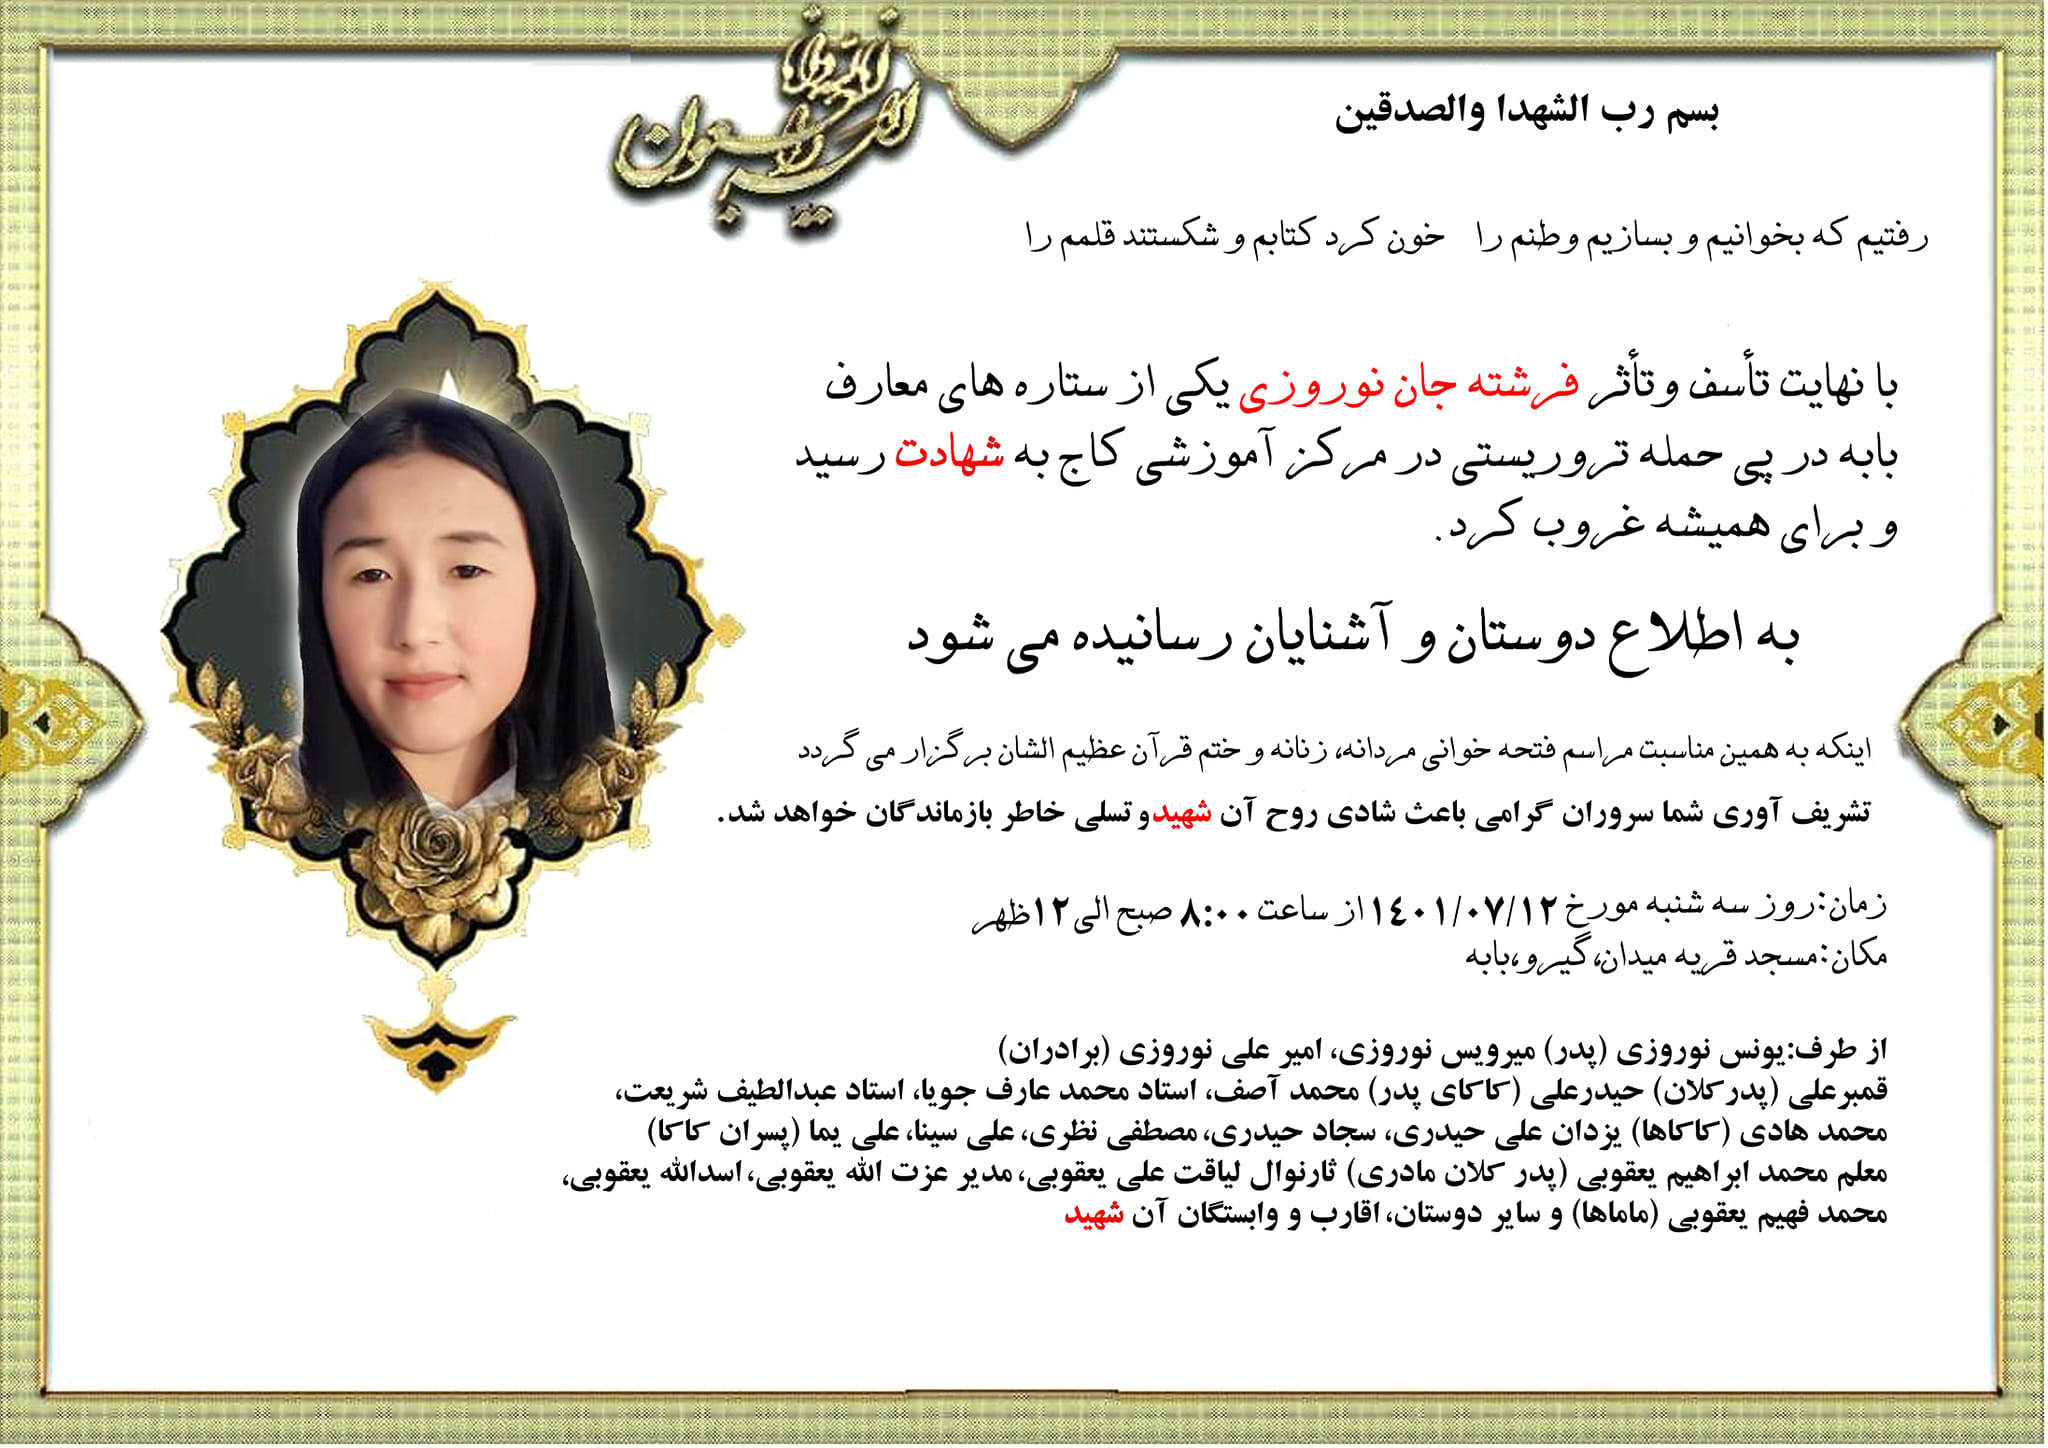 انا لله وانا الیه راجعون
بسم رب الشهدا والصدقین
رفتیم که بخوانیم و بسازیم وطنم را خون کرد کتابم و شکستند قلمم را
با نهایت تأسف وتأثر فرشته جان نوروزی یکی از ستاره های معارف
بابه در پی حمله تروریستی در مرکز آموزشی کاج به شهادت رسید
و برای همیشه غروب کرد.
به اطلاع دوستان و آشنایان رسانیده می شود
اینکه به همین مناسبت مراسم فتحه خوانی مردانه، زنانه و ختم قرآن عظیم الشان برگزار می گردد
تشریف آوری شما سروران گرامی باعث شادی روح آن شهید و تسلی خاطر بازماندگان خواهد شد.
زمان:روز سه شنبه مورخ ۱۴۰۱/۰۷/۱۲ از ساعت ۸:۰۰ صبح الی ۱۲ ظهر
مکان:مسجد قریه میدان،گیرو،بابه
از طرف:یونس نوروزی (پدر) میرویس نوروزی، امیر علی نوروزی (برادران)
قمبرعلی (پدرکلان) حیدرعلی (کاکای پدر) محمد آصف، استاد محمد عارف جویا، استاد عبدالطیف شریعت،
محمد هادی (کاکاها) یزدان علی حیدری، سجاد حیدری، مصطفی نظری، علی سینا، علی یما (پسران کاکا)
معلم محمد ابراهیم یعقوبی (پدر کلان مادری) ثارنوال لیاقت علی یعقوبی، مدیر عزت الله یعقوبی، اسدالله یعقوبی،
محمد فهیم یعقوبی (ماماها) و سایر دوستان، اقارب و وابستگان آن شهید